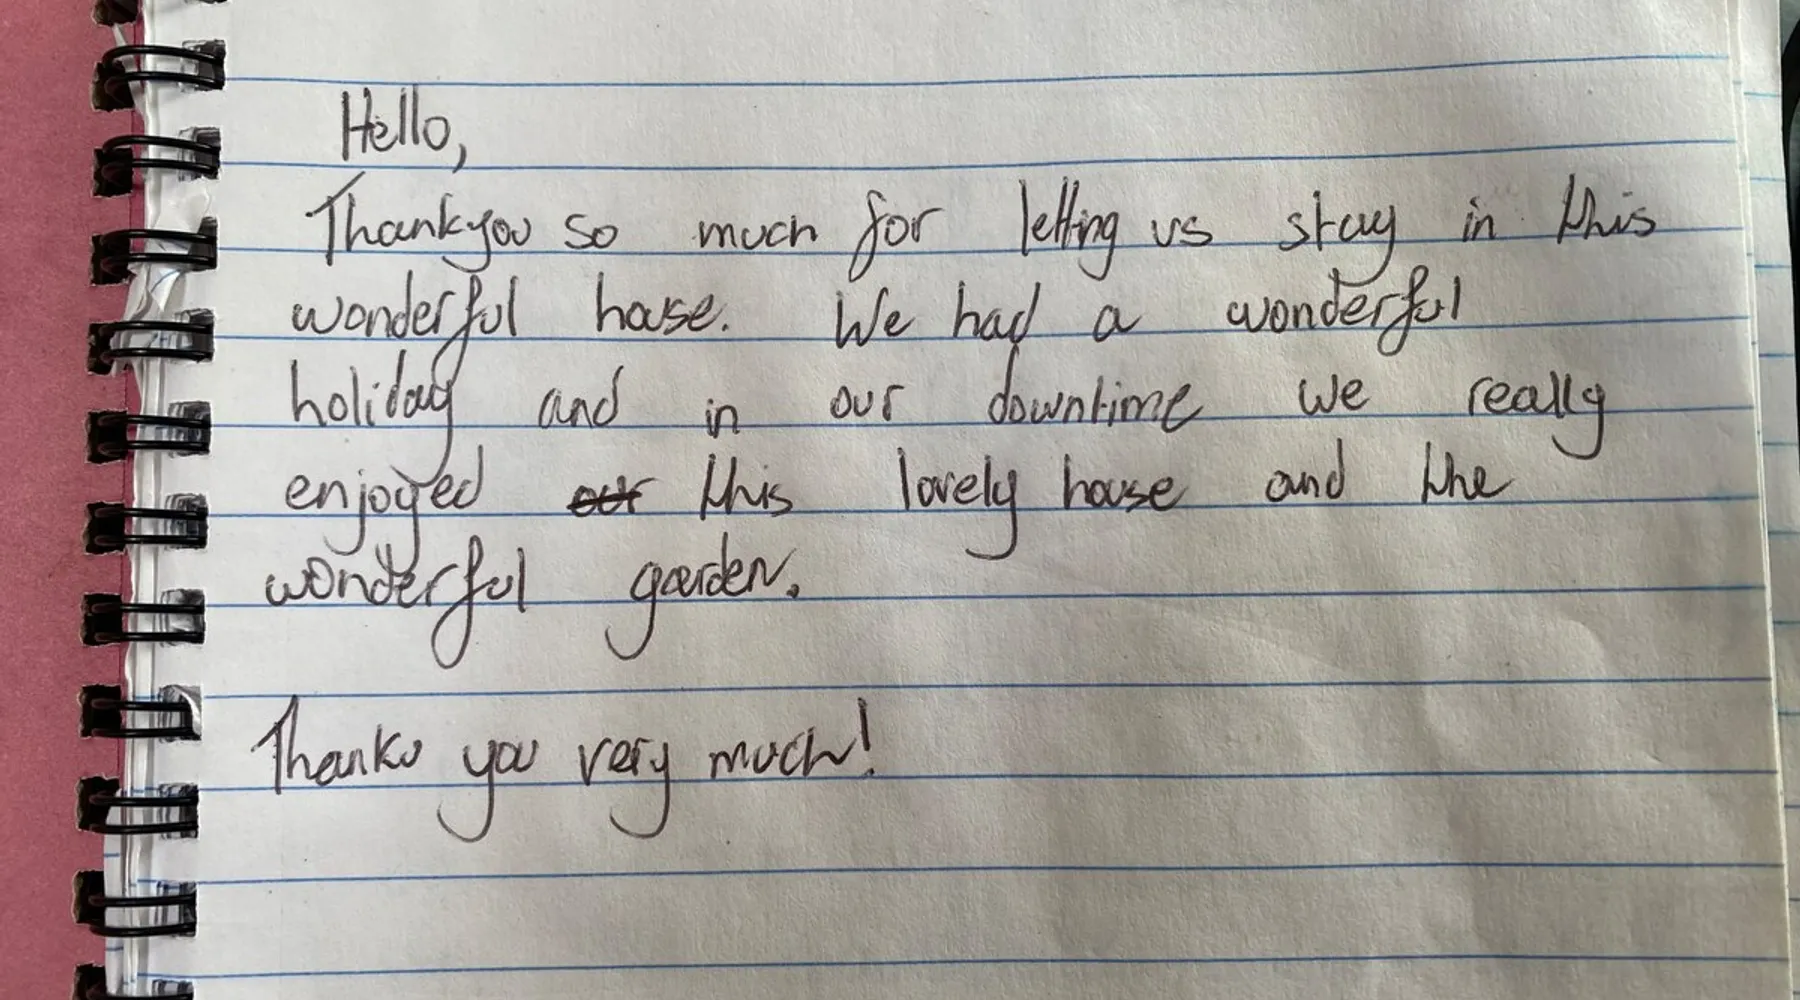 Hello,
Thankyou so much for letting us stay in this
wonderful house. We had a wonderful
holiday and in our downtime we really
enjoyed our this lovely house and the
wonderful garden.
Thanku you very much!